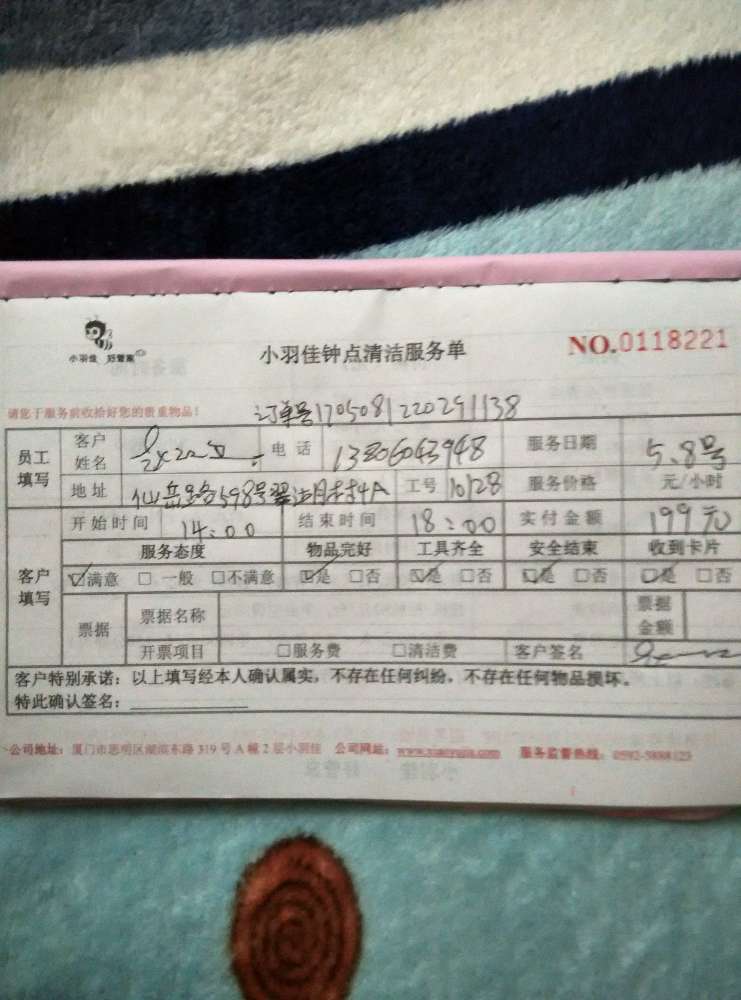 小羽佳 好管家
小羽佳钟点清洁服务单
NO.0118221
请您于服务前收拾好您的贵重物品!
订单号1705081220291138
员工填写 客户姓名 电话 13806043948 服务日期 5.8号
地址 仙岳路598号 4A 工号 10128 服务价格 元/小时
客户填写 开始时间 14:00 结束时间 18:00 实付金额 199元
服务态度 物品完好 工具齐全 安全结束 收到卡片
☑满意 □一般 □不满意 ☑是 □否 ☑是 □否 ☑是 □否 ☑是 □否
票据 票据名称 票据金额
开票项目 □服务费 □清洁费 客户签名
客户特别承诺:以上填写经本人确认属实,不存在任何纠纷,不存在任何物品损坏。
特此确认签名:
公司地址:厦门市思明区湖滨东路319号A幢2层小羽佳 公司网站:www.xiaoyujia.com 服务监督热线:0592-5888123